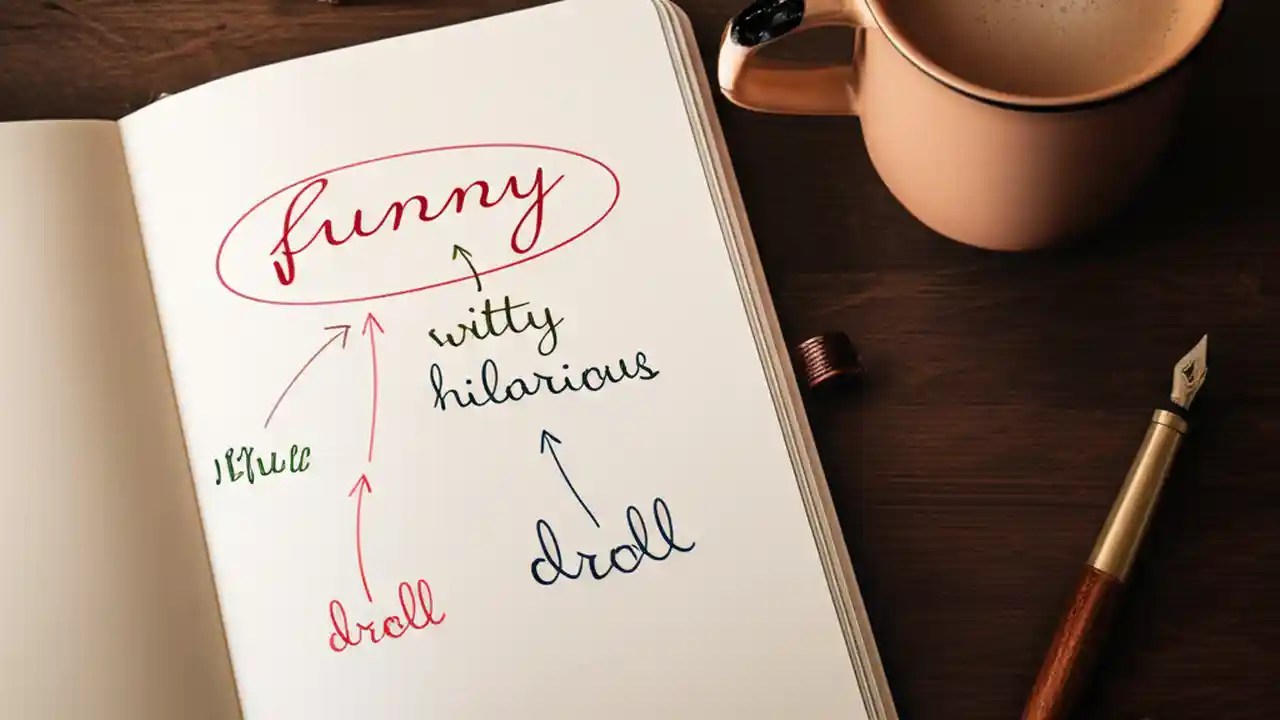 funny
witty
hilarious
droll
droll